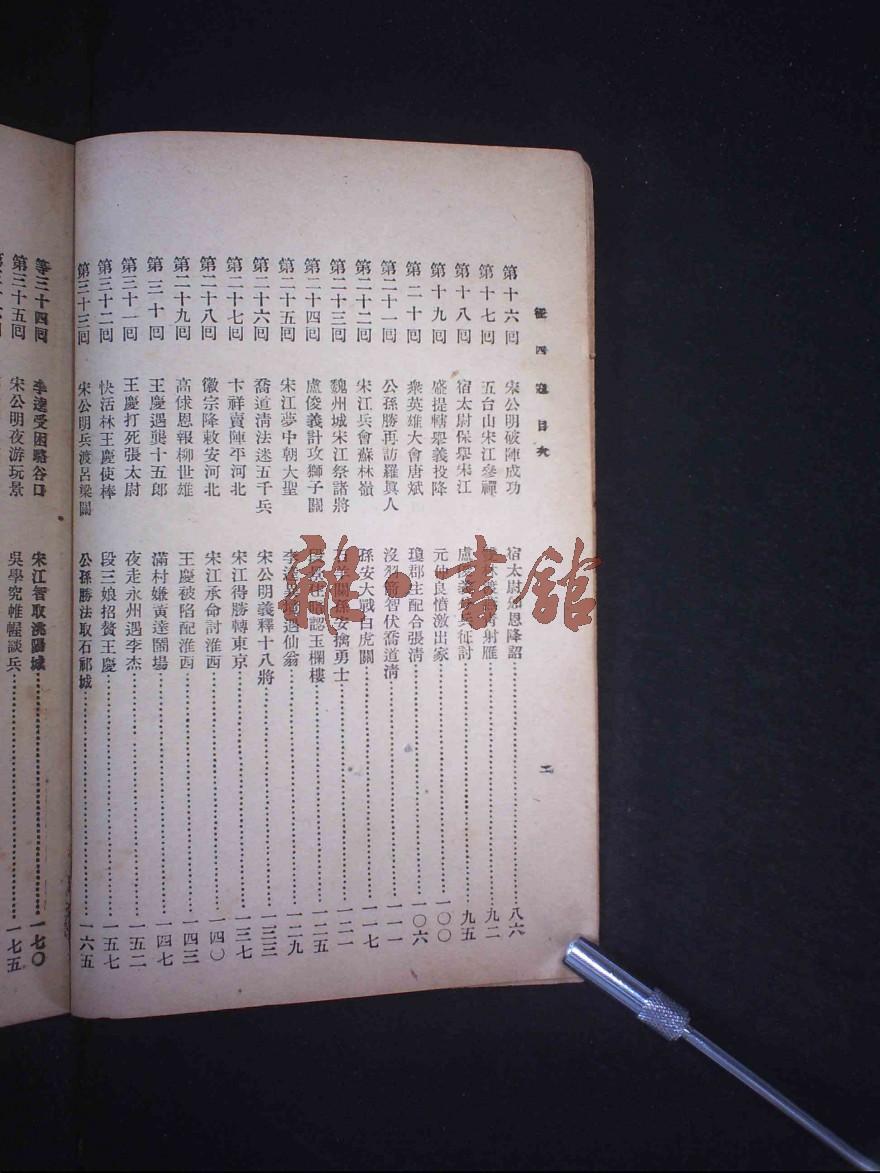 征四寇目次
二
第十六回 宋公明破陣成功 宿太尉知恩降詔 八六
第十七回 五台山宋江參禪 射雁 九二
第十八回 宿太尉保舉宋江 盧俊義分兵征討 九五
第十九回 盛提轄舉義投降 元仲良憤激出家 一〇〇
第二十回 衆英雄大會唐斌 瓊郡主配合張淸 一〇六
第二十一回 公孫勝再訪羅眞人 沒羽箭智伏喬道淸 一一一
第二十二回 宋江兵會蘇林嶺 孫安大戰白虎關 一一七
第二十三回 魏州城宋江祭諸將 石羊關孫安擒勇士 一二一
第二十四回 盧俊義計攻獅子關 段景住暗認玉欄樓 一二五
第二十五回 宋江夢中朝大聖 李逵異境遇仙翁 一二九
第二十六回 喬道淸法迷五千兵 宋公明義釋十八將 一三三
第二十七回 卞祥賣陣平河北 宋江得勝轉東京 一三七
第二十八回 徽宗降敕安河北 宋江承命討淮西 一四〇
第二十九回 高俅恩報柳世雄 王慶被陷配淮西 一四三
第三十回 王慶遇龔十五郎 滿村嫌黃達鬧場 一四七
第三十一回 王慶打死張太尉 夜走永州遇李杰 一五二
第三十二回 快活林王慶使棒 段三娘招贅王慶 一五七
第三十三回 宋公明兵渡呂梁關 公孫勝法取石祁城 一六五
第三十四回 李逵受困駱谷口 宋江智取洮陽城 一七〇
第三十五回 宋公明夜游玩景 吳學究帷幄談兵 一七五
雅書館